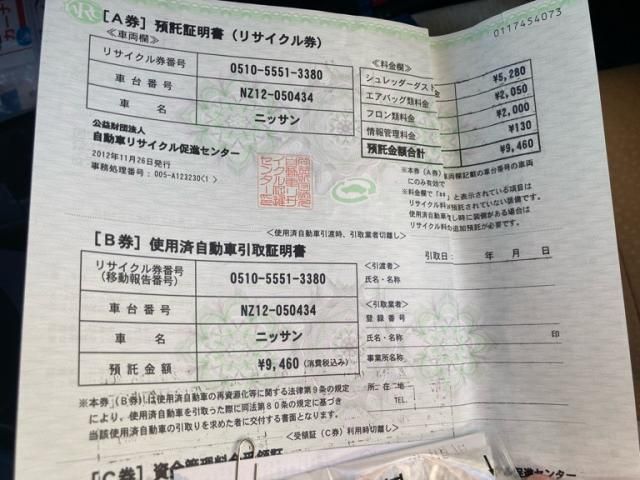 0117454073
[A券] 預託証明書(リサイクル券)
≪車両欄≫
リサイクル券番号 0510-5551-3380
車台番号 NZ12-050434
車名 ニッサン
≪料金欄≫
シュレッダーダスト ¥5,280
エアバッグ類料金 ¥2,050
フロン類料金 ¥2,000
情報管理料金 ¥130
預託金額合計 ¥9,460
公益財団法人
自動車リサイクル促進センター
2012年11月26日発行
事務処理番号: 005-A123230(1)
※本券(A券)
にのみ有効で
車両欄記載の車台番号の車両
※料金欄で「**」と表示されている項目は
リサイクル料が預託されていない装備です。
使用済自動車
し時に装備がある場合は
リサイクル料の追加預託が必要です。
<使用済自動車引渡時、引取業者切離し>
[B券] 使用済自動車引取証明書
リサイクル券番号
(移動報告番号) 0510-5551-3380
車台番号 NZ12-050434
車名 ニッサン
預託金額 ¥9,460 (消費税込み)
引取日: 年 月 日
<引渡者>
氏名・名称
<引取業者>
登録番号
氏名・名称 印
事業所名称
所在地
TEL.
※本券(B券)は使用済自動車の再資源化等に関する法律第9条の規定
により、使用済自動車を引取った際に同法第80条の規定に基づき
当該使用済自動車の引取りを求めた者に交付する書面となります。
<受領証(C券)利用時切離し>
[C券] 資金管理料金受領証
ル促進センター